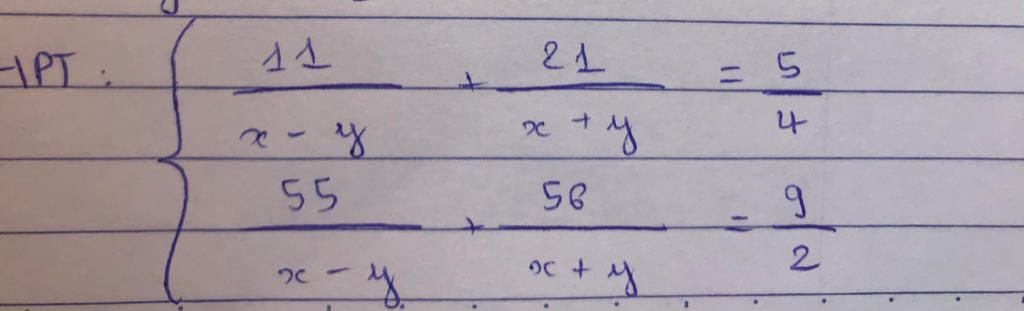 HPT : { 11/(x - y) + 21/(x + y) = 5/4
55/(x - y) + 56/(x + y) = 9/2